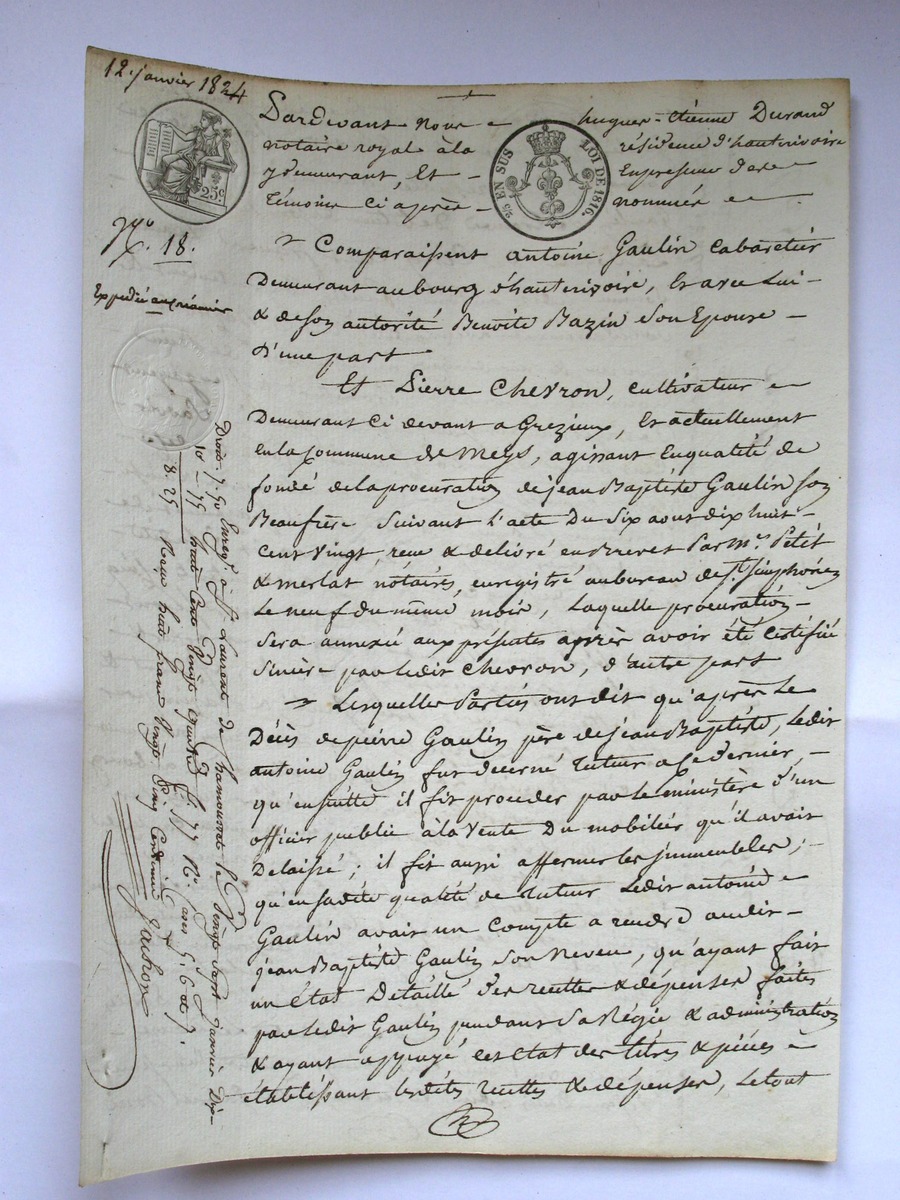 12. janvier 1824
Pardevant nous hugues-étienne Durand
notaire royal à la résidence d'hauterivoire
y demeurant, Et En presence des
Témoins ci après nommés
25c.
25c EN SUS LOI DE 1816.
No. 18.
Expédié au premier
Comparaissent antoine Gaulin cabaretier
Demeurant au bourg d'hauterivoire, Et avec Lui
& de son autorité Benoite Bazin son Epouse
D'une part
Et Pierre Chevron, cultivateur
Demeurant ci devant a Grezieux, Et actuellement
En la commune de Meys, agissant En qualité de
fondé de la procuration de jean Baptiste Gaulin son
Beaufrère suivant l'acte Du six aout dix huit
cent vingt, reçu & delivré en brevet Par Mes. Petit
& merlat nótaires, enregistré au bureau de St. simphorien
Le neuf du même mois, Laquelle procuration
sera annexée aux présentes après avoir été certifié
sincère par ledit Chevron, d'autre part
Lesquelles Parties ont dit qu'après Le
Décès de pierre Gaulin père de jean Baptiste, Ledit
antoine Gaulin fut decerné tuteur a ce dernier,
qu'ensuitte il fit proceder par le ministère d'un
officier public à la vente Du mobilier qu'il avait
Delaissé ; il fit aussi affermer les jmmeubles ;
qu'en sadite qualité de tuteur Ledit antoine
Gaulin avait un Compte a rendre audit
jean Baptiste Gaulin son neveu, qu'ayant fait
un état Detaillé des recettes & dépenses faites
par ledit Gaulin pendant sa Régie & administration
& ayant appuyé cet Etat des titres & pièces
établissant lesdites recettes & dépenses, Le tout
Droits 7. 50 Enregt. à St Laurent de Chamousset le vingt sept janvier Dix
10e 75 huit cent vingt quatre fo. 77 Ro. Cases 5, 6 et 7.
8. 25 Reçu huit francs vingt cinq centimes
Gachon